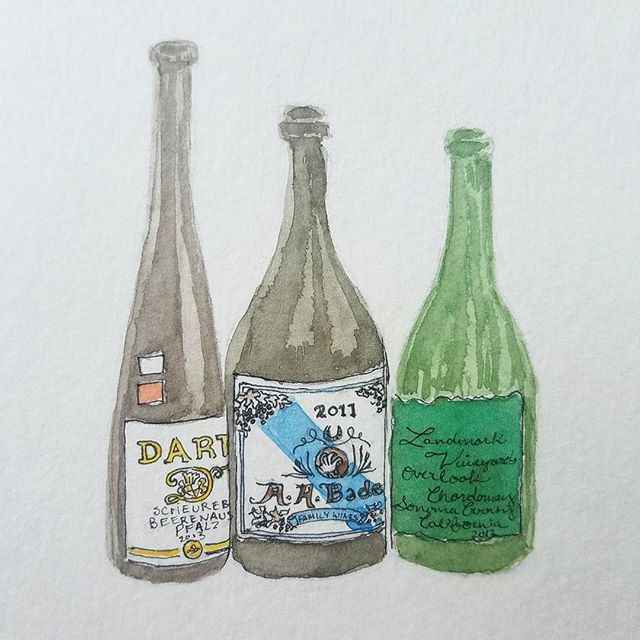 DART
SCHEUREB
BEERENAUS
PFALZ
2013
2011
A.A. Bade
FAMILY WINES
Landmark
Vineyards
Overlook
Chardonnay
Sonoma County
California
2013